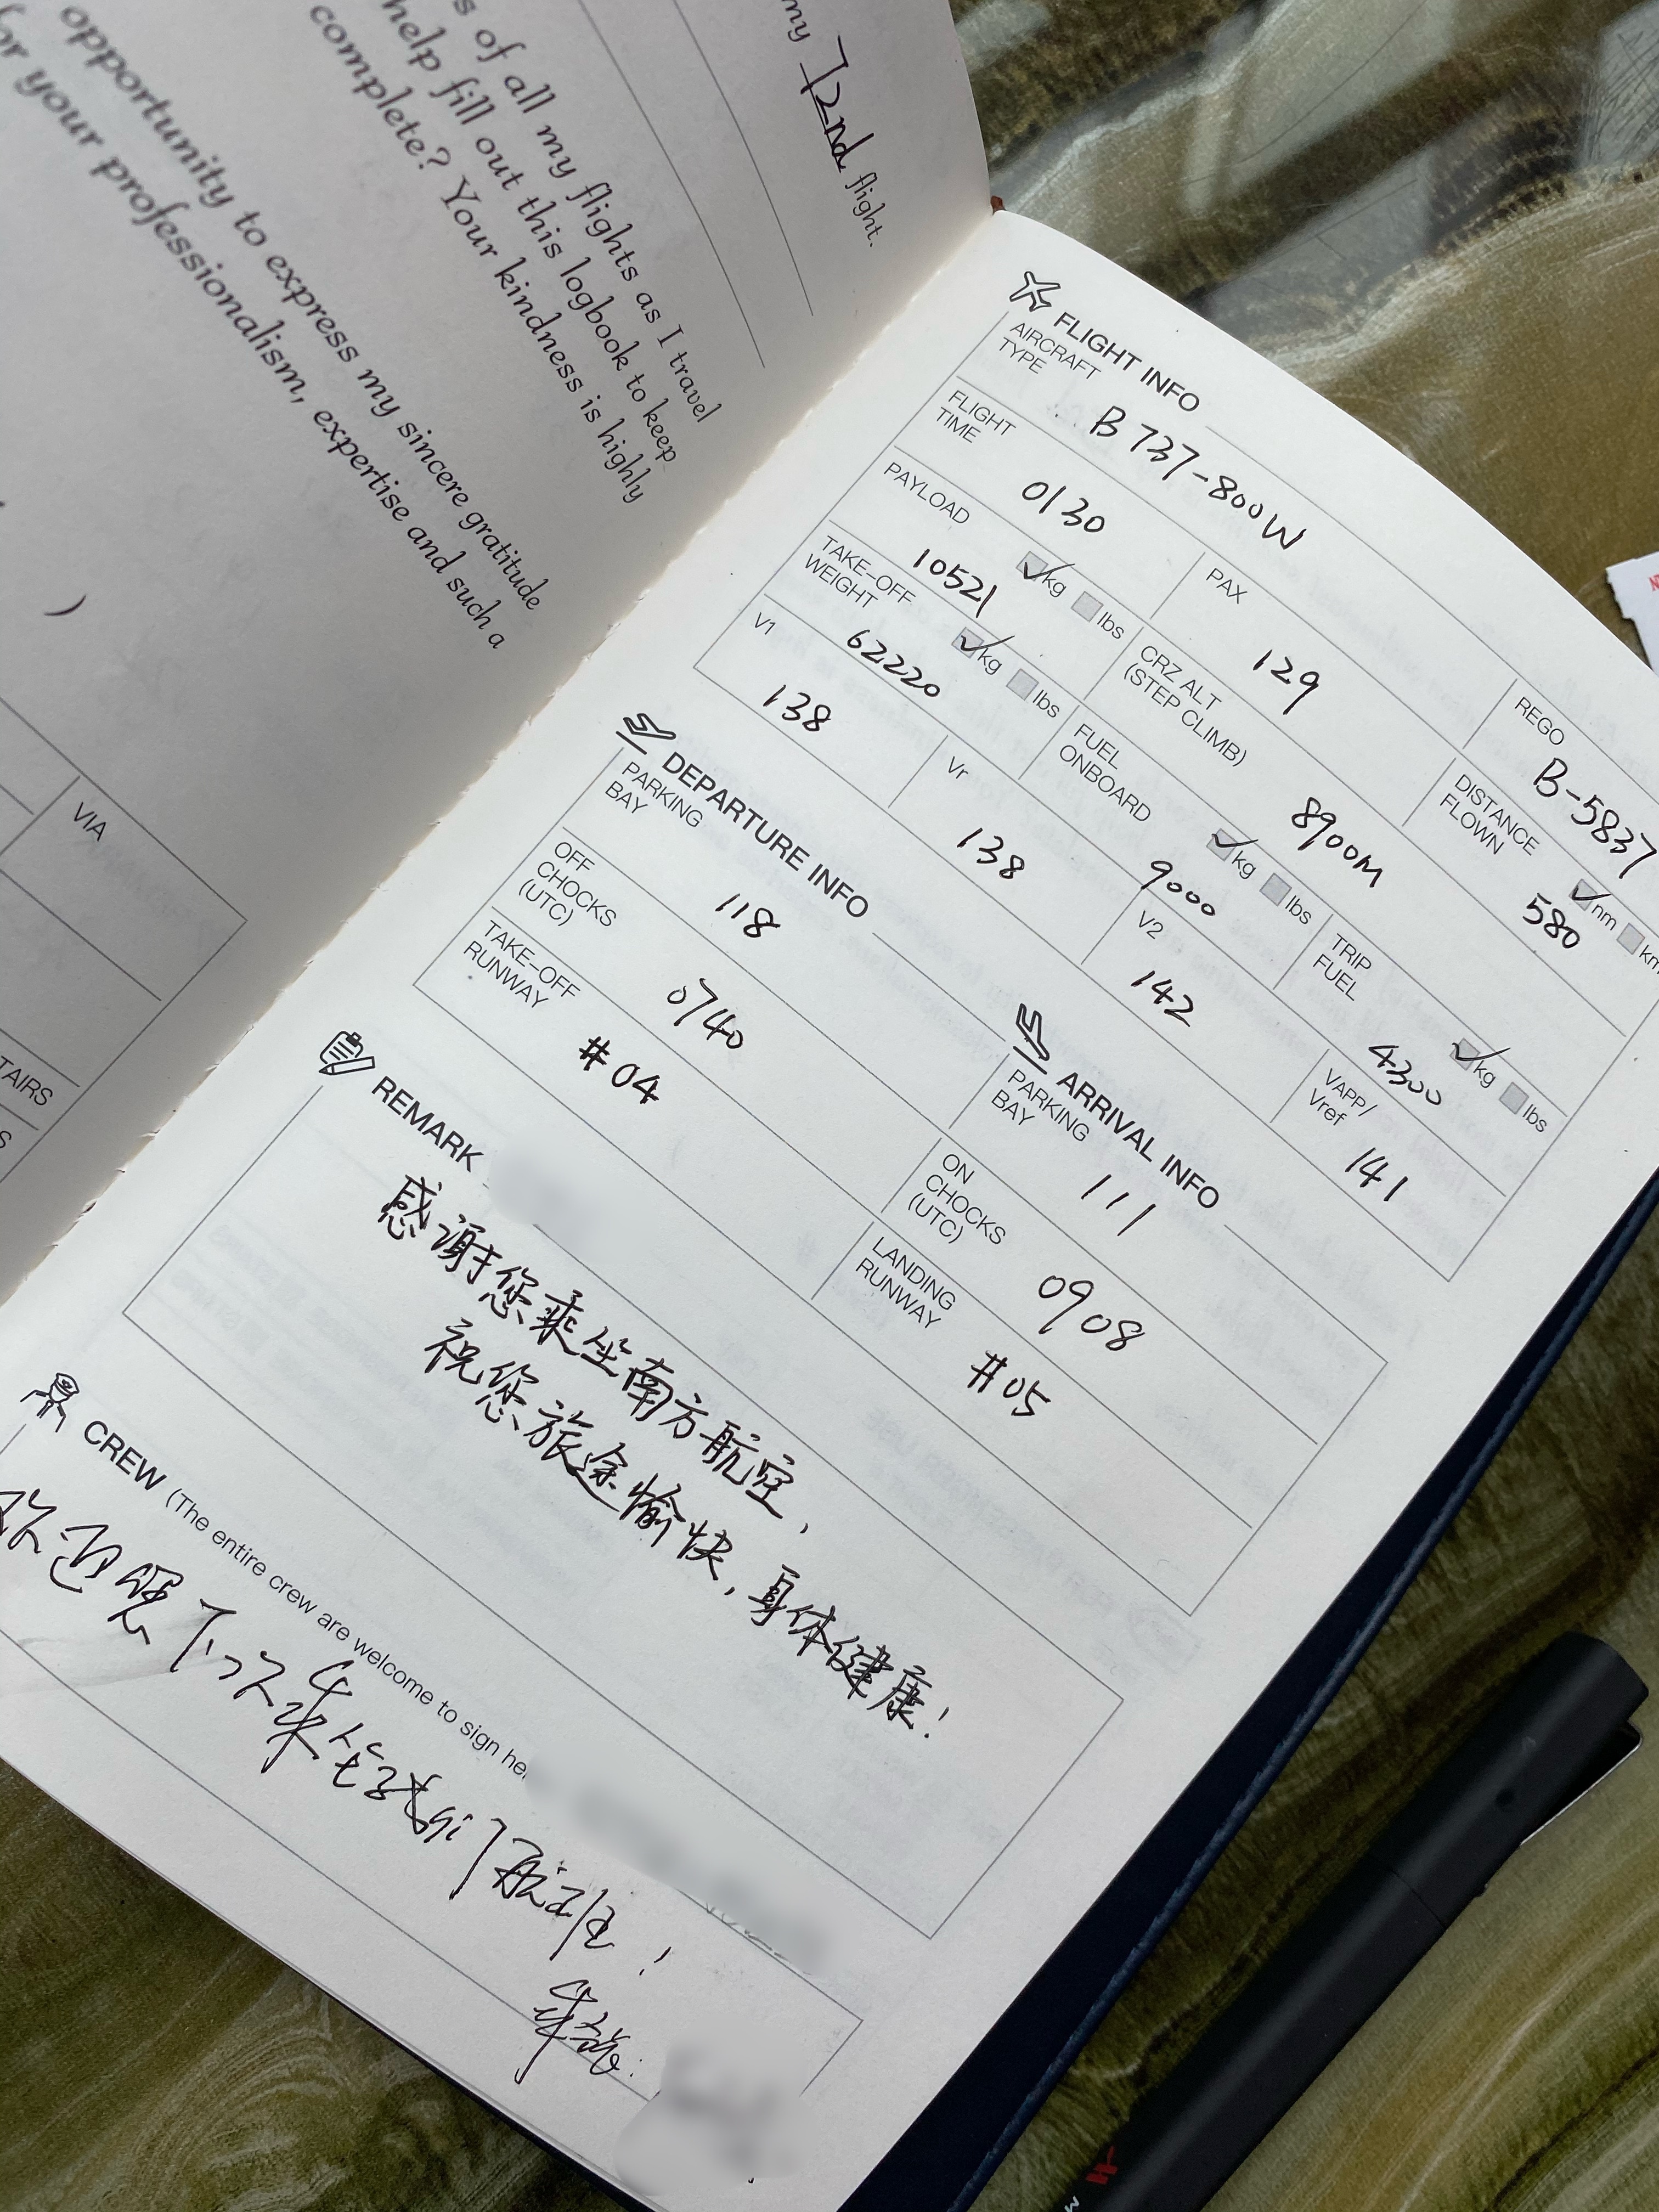 my 72nd flight.
s of all my flights as I travel
help fill out this logbook to keep
complete? Your kindness is highly
opportunity to express my sincere gratitude
or your professionalism, expertise and such a
VIA
TAIRS
S
FLIGHT INFO
AIRCRAFT TYPE B737-800W
REGO B-5837
FLIGHT TIME 0130
PAX 129
DISTANCE FLOWN 580 nm km
PAYLOAD 10521 kg lbs
CRZ ALT (STEP CLIMB) 8900M
TAKE-OFF WEIGHT 62220 kg lbs
FUEL ONBOARD 9000 kg lbs
TRIP FUEL 4300 kg lbs
V1 138
Vr 138
V2 142
VAPP/Vref 141
DEPARTURE INFO
PARKING BAY 118
OFF CHOCKS (UTC) 0740
TAKE-OFF RUNWAY #04
ARRIVAL INFO
PARKING BAY 111
ON CHOCKS (UTC) 0908
LANDING RUNWAY #05
REMARK
感谢您乘坐南方航空，
祝您旅途愉快，身体健康！
CREW (The entire crew are welcome to sign her
欢迎您下次乘坐我们航班！
乘务：